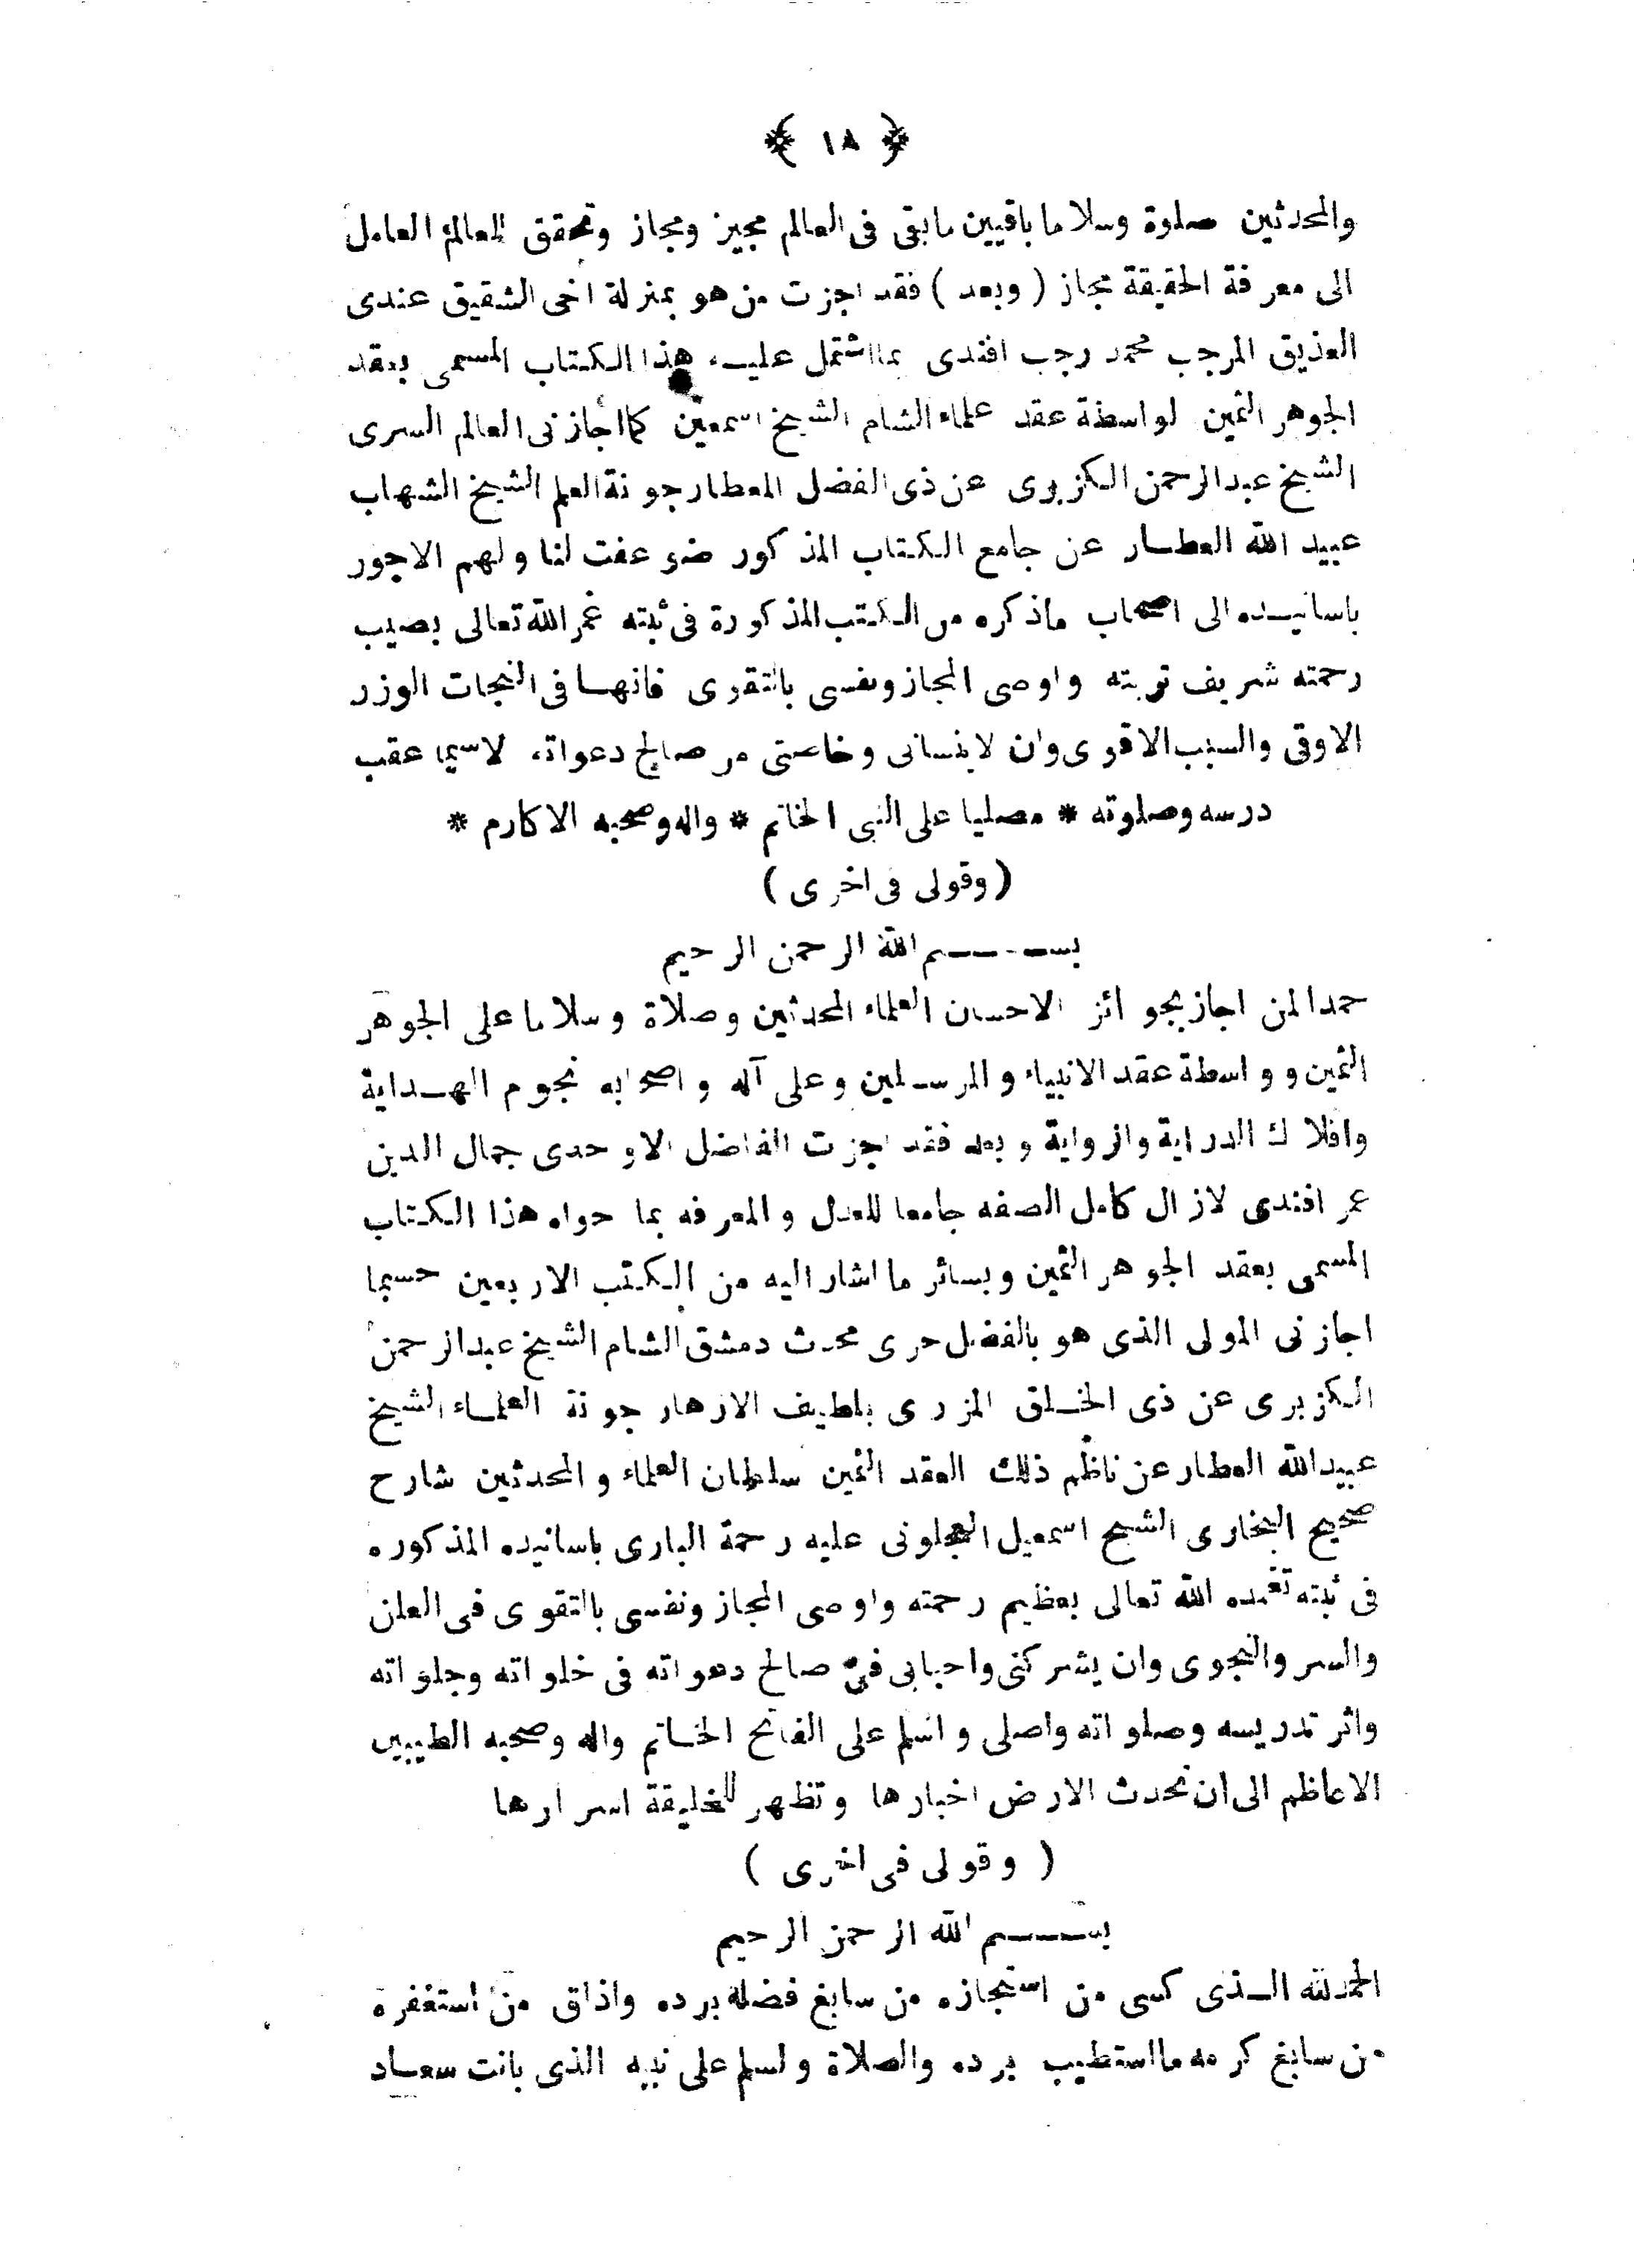 ﴿ ١٨ ﴾
والمحدثين صلوة وسلاما باقيين مابقى فى العالم مجيز ومجاز وتحقق للعالم العامل
الى معرفة الحقيقة مجاز ( وبعد ) فقد اجزت من هو بمنزلة اخى الشقيق عندى
العذيق المرجب محمد رجب افندى بما اشتمل عليه هذا الكتاب المسمى بعقد
الجوهر الثمين لواسطة عقد علماء الشام الشيخ اسمعين كما اجازنى العالم السرى
الشيخ عبدالرحمن الكزبرى عن ذى الفضل المعطار جونة العلم الشيخ الشهاب
عبيد الله العطار عن جامع الكتاب المذكور ضوعفت لنا ولهم الاجور
باسانيده الى اصحاب ماذكره من الكتب المذكورة فى ثبته غمر الله تعالى بصيب
رحمته شريف تربته واوصى المجاز ونفسى بالتقوى فانها فى النجات الوزر
الاوقى والسبب الاقوى وان لاينسانى وخاصتى من صالح دعواته لاسيما عقب
درسه وصلوته * مصليا على النبى الخاتم * واله وصحبه الاكارم *
( وقولى فى اخرى )
بسم الله الرحمن الرحيم
حمدا لمن اجاز بجوائز الاحسان العلماء المحدثين وصلاة وسلاما على الجوهر
الثمين وواسطة عقد الانبياء والمرسلين وعلى آله واصحابه نجوم الهداية
وافلاك الدراية والرواية وبعد فقد اجزت الفاضل الاوحدى جمال الدين
عمر افندى لازال كامل الصفه جامعا للعدل والمعرفه بما حواه هذا الكتاب
المسمى بعقد الجوهر الثمين وبسائر ما اشار اليه من الكتب الاربعين حسبما
اجازنى المولى الذى هو بالفضل حرى محدث دمشق الشام الشيخ عبدالرحمن
الكزبرى عن ذى الخلق المزرى بلطيف الازهار جونة العلماء الشيخ
عبيدالله العطار عن ناظم ذلك العقد الثمين سلطان العلماء والمحدثين شارح
صحيح البخارى الشيخ اسمعيل العجلونى عليه رحمة البارى باسانيده المذكوره
فى ثبته تغمده الله تعالى بعظيم رحمته واوصى المجاز ونفسى بالتقوى فى العلن
والسر والنجوى وان يشركنى واحبابى فى صالح دعواته فى خلواته وجلواته
واثر تدريسه وصلواته واصلى واسلم على الفاتح الخاتم واله وصحبه الطيبين
الاعاظم الى ان تحدث الارض اخبارها وتظهر للخليقة اسرارها
( وقولى فى اخرى )
بسم الله الرحمن الرحيم
الحمدلله الذى كسى من استجازه من سابغ فضله برده واذاق من استغفره
من سابغ كرمه ما استطيب برده والصلاة ولسلم على نبيه الذى بانت سعاد